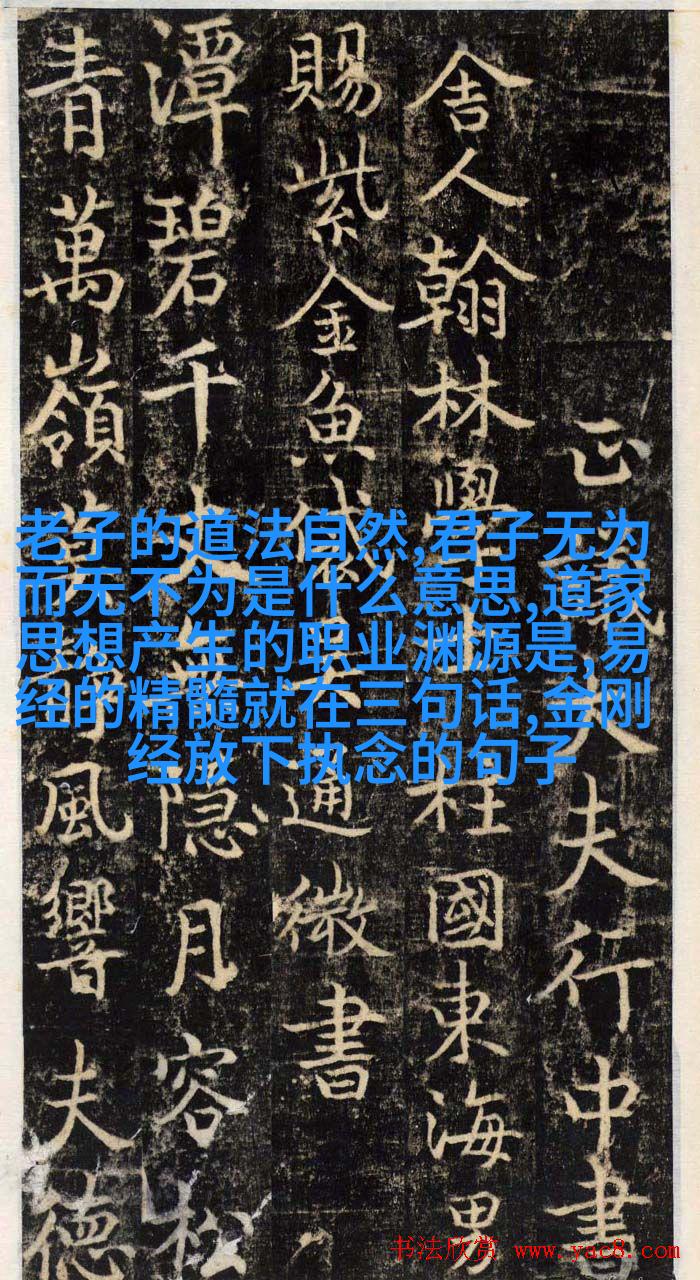 正議大夫行中書
舍人翰林學柱國東海男
賜紫金魚袋吳通微書
潭碧千丈無隐月容松
青萬嶺風響夫德
老子的道法自然,君子无为
而无不为是什么意思,道家
思想产生的职业渊源是,易
经的精髓就在三句话,金刚
经放下执念的句子
书法欣赏 www.yac8.com